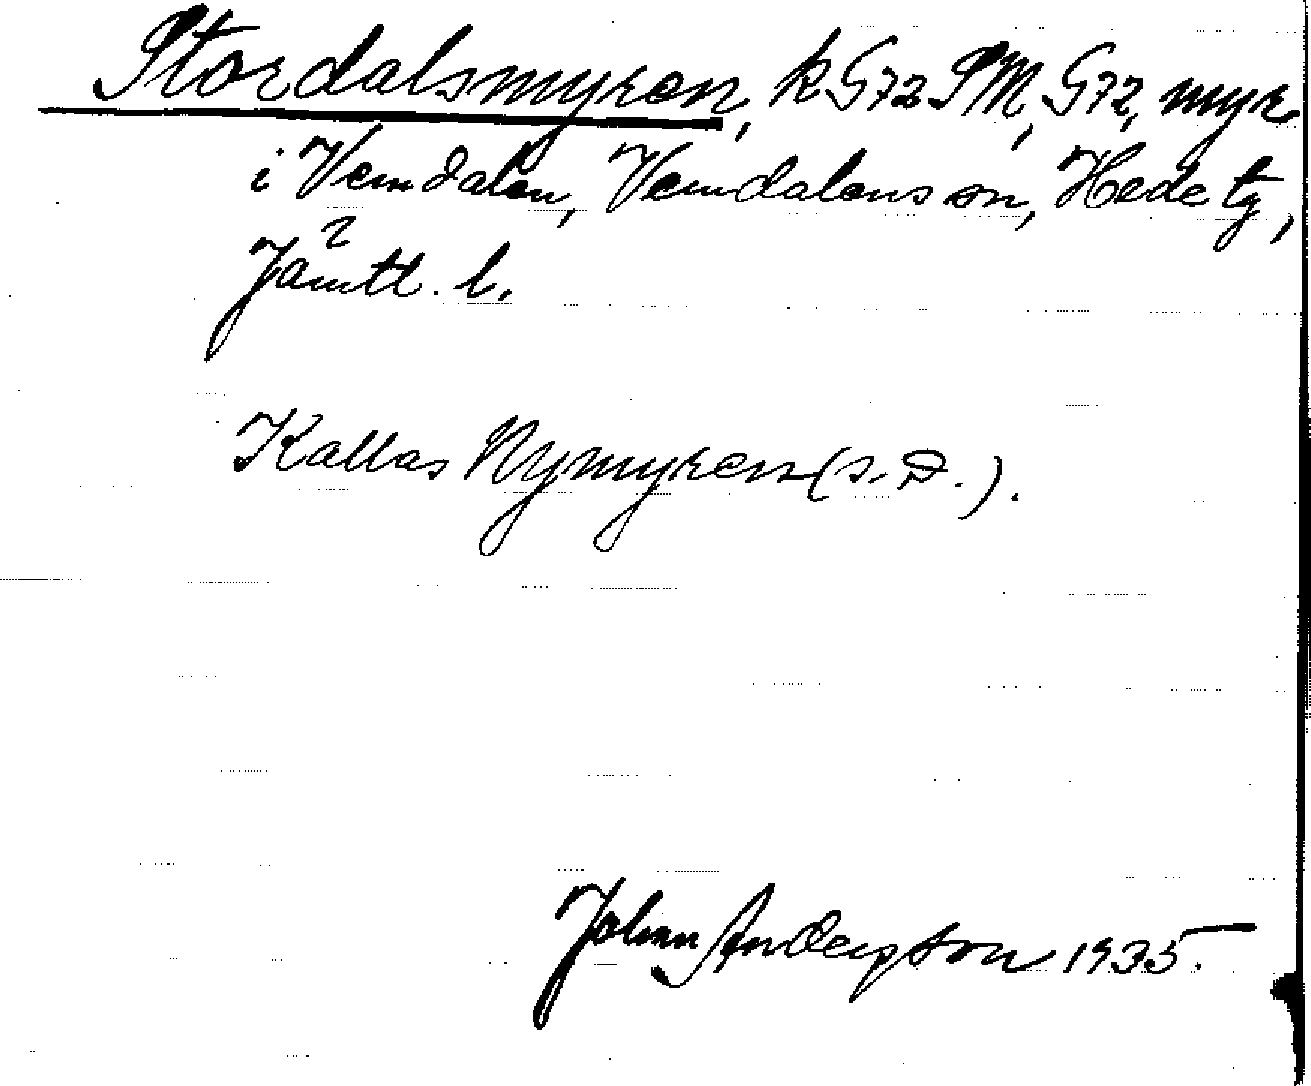 Stordalsmyren, k G72 SM, G72, myr
i Vemdalen, Vemdalens sn, Hede tg,
Jämtl. l.
Kallas Nymyren (s. d.).
Johan Anderson 1935.